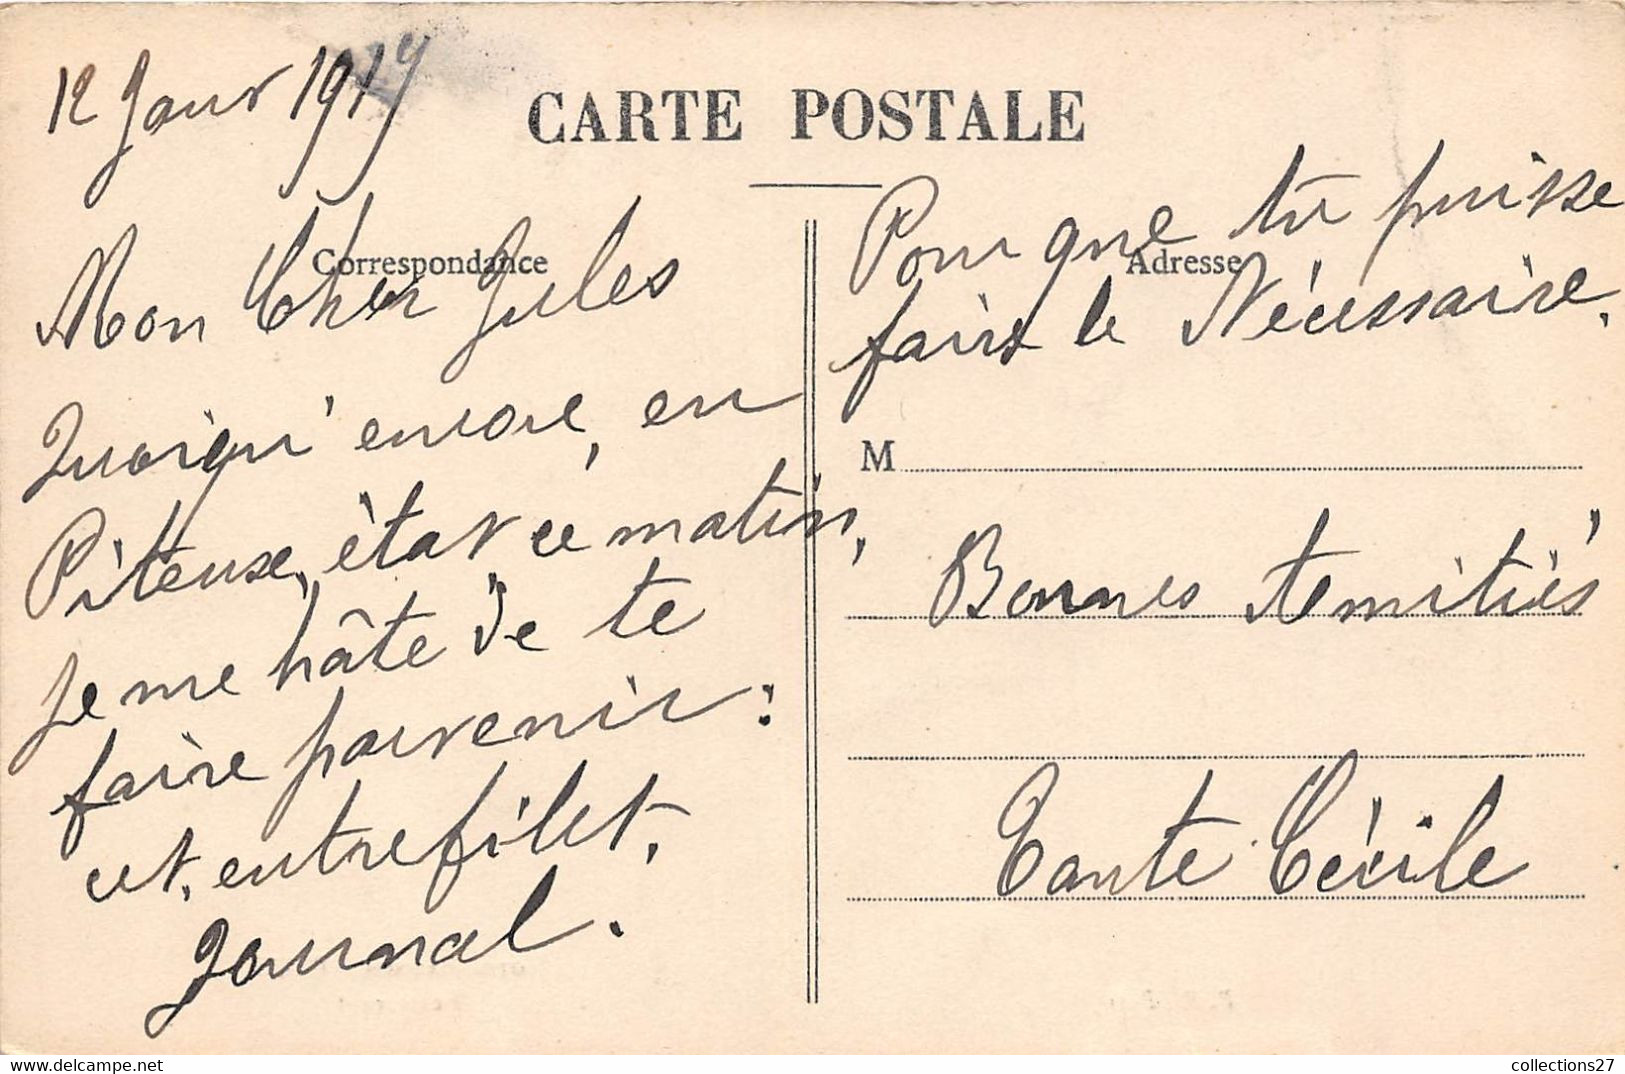 12 Janvr 1919
CARTE POSTALE
Correspondance
Mon Cher Jules
Quoiqu'encore, en
Piteuse, état ce matin,
Je me hâte de te
faire parvenir :
cet, entrefilet,
Journal.
Adresse
Pour que tu puisse
faire le Nécessaire.
M
Bonnes Amitiés
Tante Cécile
collections27